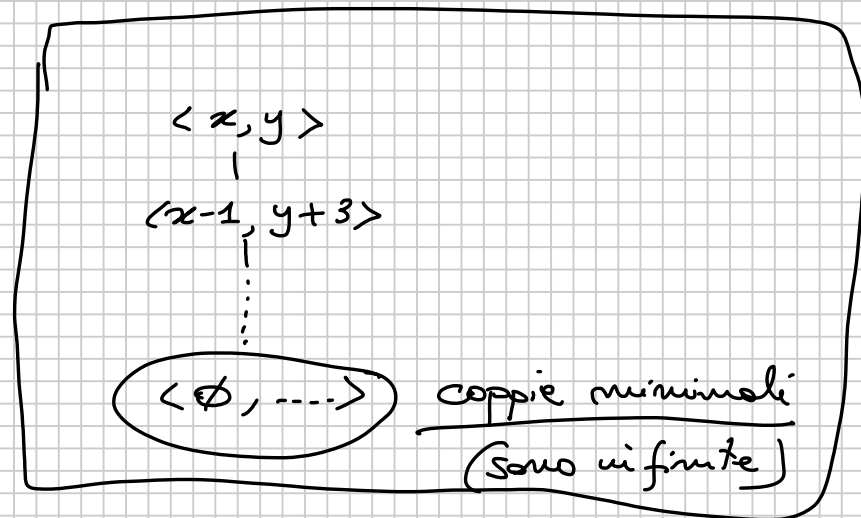 < x, y >
<x-1, y+3>
<∅, ---->
coppie minimali
(sono infinite)